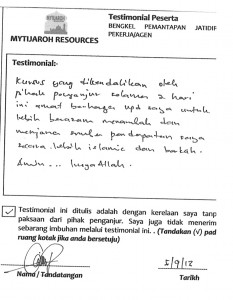 Testimonial Peserta
BENGKEL PEMANTAPAN JATIDIR
PEKERJA/AGEN
MYTIJAROH RESOURCES
Testimonial:-
Kursus yang dikendalikan oleh
pihak penganjur selama 2 hari
ini amat berharga utk saya untuk
lebih menambah dan
menjana sumber pendapatan saya
secara lebih islamic dan barkah.
Amin... InsyaAllah.
Testimonial ini ditulis adalah dengan kerelaan saya tanp
paksaan dari pihak penganjur. Saya juga tidak menerim
sebarang imbuhan melalui testimonial ini. . (Tandakan (√) pad
ruang kotak jika anda bersetuju)
5/9/12
Nama / Tandatangan
Tarikh